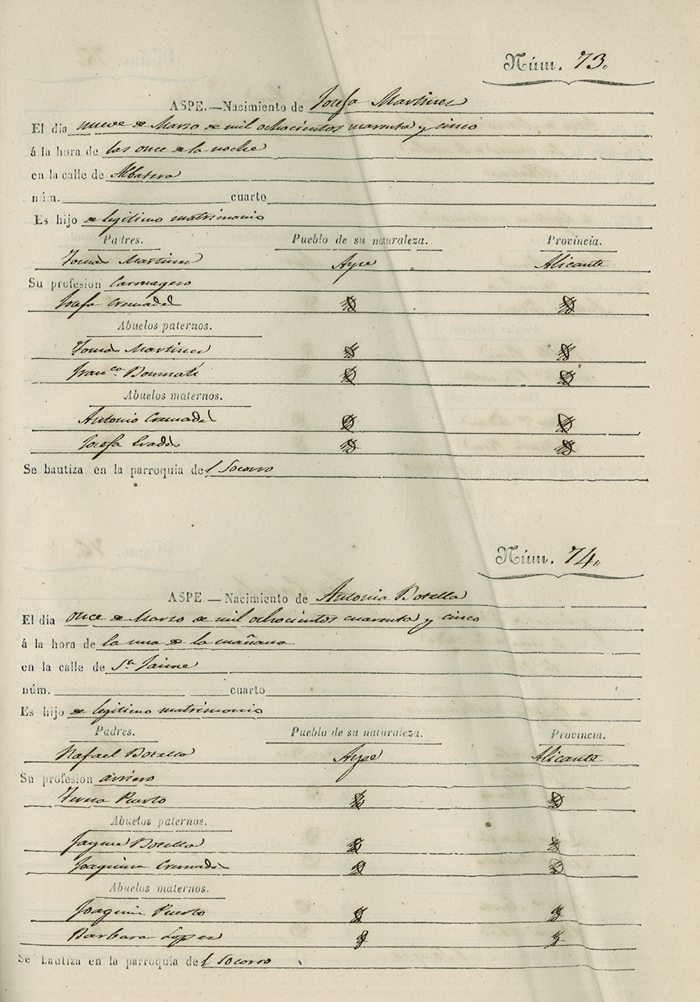 Núm. 73.
ASPE.—Nacimiento de Josefa Martinez
El día nueve de Marzo de mil ochocientos cuarenta y cinco
á la hora de las once de la noche
en la calle de Albatera
núm. cuarto
Es hijo de legitimo matrimonio
Padres. Pueblo de su naturaleza. Provincia.
Tomas Martinez Aspe Alicante
Su profesion
Josefa Cremades
Abuelos paternos.
Tomas Martinez
Fran.ca
Abuelos maternos.
Antonio Cremades
Josefa
Se bautiza en la parroquia del Socorro
Núm. 74.
ASPE.—Nacimiento de Antonia Botella
El día once de Marzo de mil ochocientos cuarenta y cinco
á la hora de la una de la mañana
en la calle de Sn. Jaime
núm. cuarto
Es hijo de legitimo matrimonio
Padres. Pueblo de su naturaleza. Provincia.
Rafael Botella Aspe Alicante
Su profesion arriero
Puerto
Abuelos paternos.
Jayme Botella
Joaquina Cremades
Abuelos maternos.
Joaquin Puerto
Barbara Lopez
Se bautiza en la parroquia del Socorro